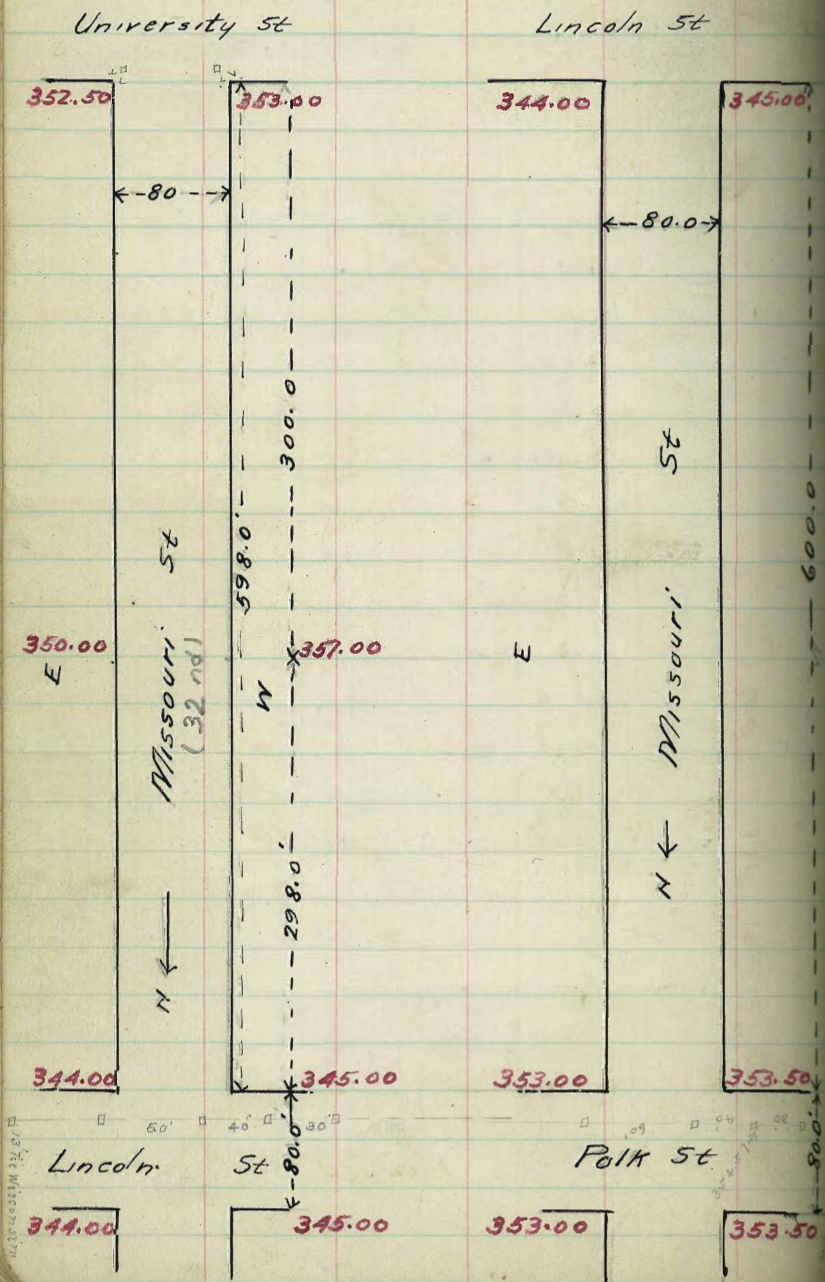 University St
Lincoln St
352.50
353.00
344.00
345.00
80
80.0
300.0
598.0'
600.0
Missouri St
(32 nd)
350.00
E
W
357.00
E
Missouri St
298.0'
N
N
344.00
345.00
353.00
353.50
60'
40'
30'
60'
Lincoln St
80.0'
Polk St
80.0'
344.00
345.00
353.00
353.50